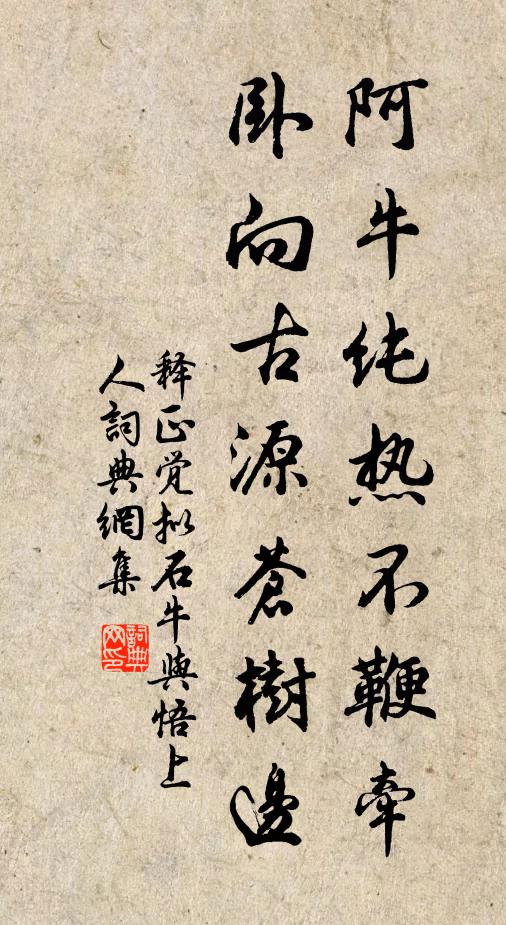 阿牛纯热不鞭牵
卧向古源苍樹邊
释正觉拟石牛與悟上
人詞典網集
詞典网印